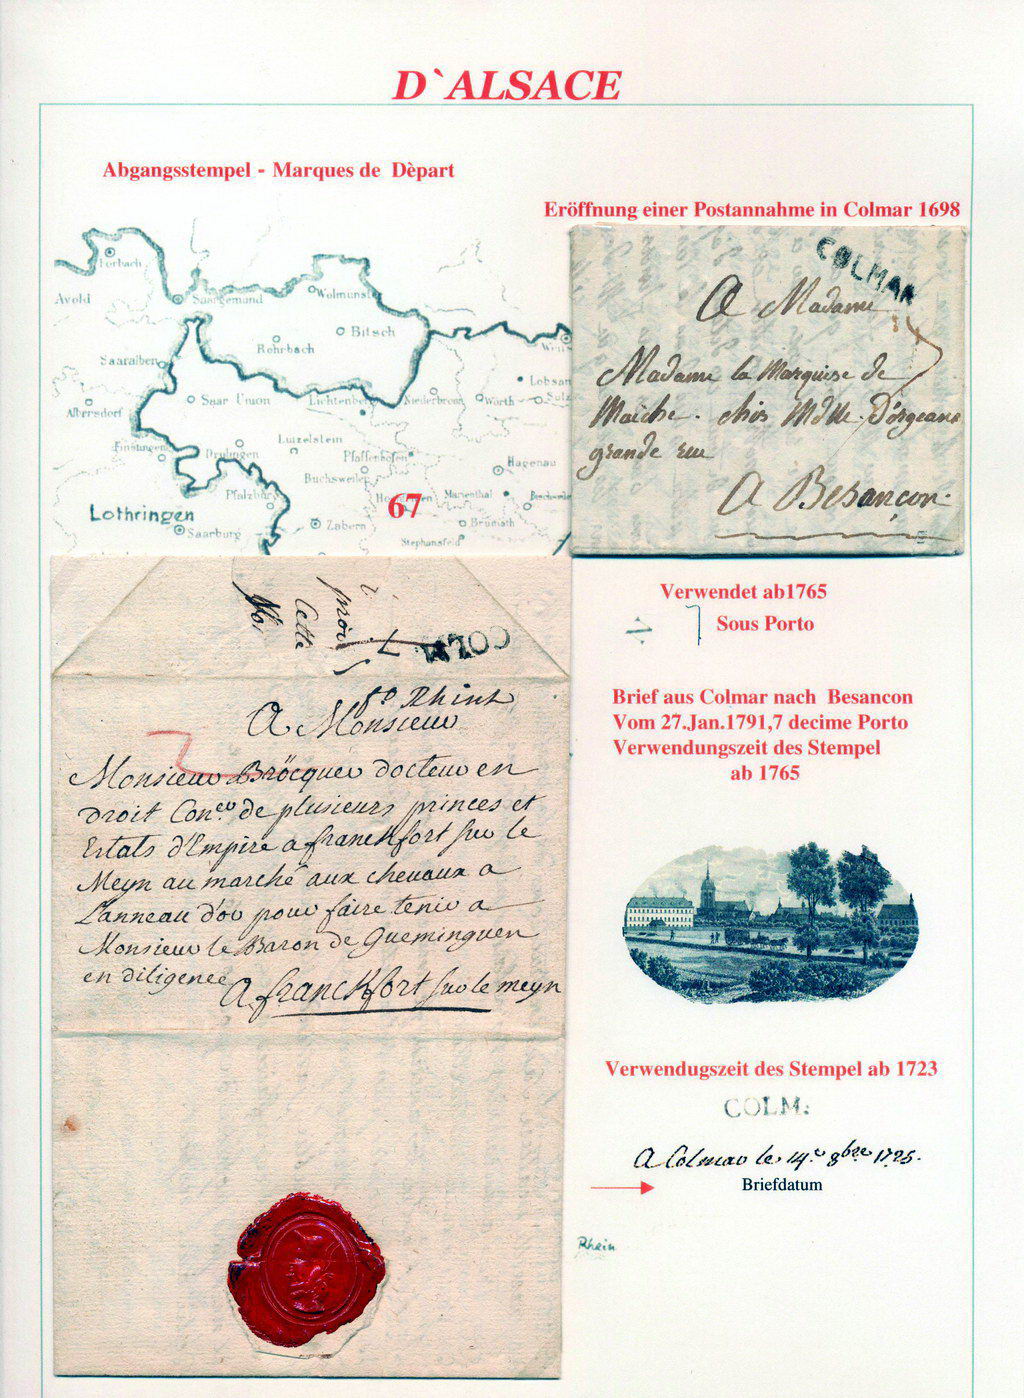 D`ALSACE
Abgangsstempel - Marques de Dèpart
Eröffnung einer Postannahme in Colmar 1698
Forbach
Avold
Saargemund
Wolmunst
Bitsch
Rohrbach
Saaralben
Saar Union
Lichtenberg
Niederbronn
Wörth
Lobsan
Sulz
Albersdorf
Finstingen
Drulingen
Lutzelstein
Pfaffenhofen
Buchsweiler
Hagenau
Pfalzburg
67
Marienthal
Lothringen
Saarburg
Zabern
Brumath
Stephansfeld
COLMAR
A Madame
Madame la Marquise de
Maiche. chés Mdlle. D'orgeans
grande rue
A Besancon.
Verwendet ab1765
7 Sous Porto
Brief aus Colmar nach Besancon
Vom 27.Jan.1791,7 decime Porto
Verwendungszeit des Stempel
ab 1765
Cette
COLM
fo Rhint
A Monsieur
Monsieur Bröcquer docteur en
Droit Coner. de plusieurs princes et
Estats d'Empire a franckfort sur le
Meyn au marché aux chevaux a
L'anneau d'or pour faire tenir a
Monsieur le Baron de Gueminguen
en diligence
A franckfort sur le meyn
Verwendugszeit des Stempel ab 1723
COLM:
A Colmar le 14e 8bre 1725.
Briefdatum
Rhein